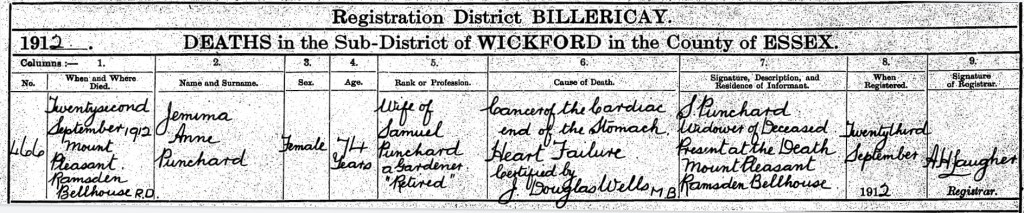 Registration District BILLERICAY.
1912. DEATHS in the Sub-District of WICKFORD in the County of ESSEX.
Columns :— 1. 2. 3. 4. 5. 6. 7. 8. 9.
No. When and Where Died. Name and Surname. Sex. Age. Rank or Profession. Cause of Death. Signature, Description, and Residence of Informant. When Registered. Signature of Registrar.
466
Twentysecond
September 1912
Mount
Pleasant
Ramsden
Bellhouse R.D.
Jemima
Anne
Punchard
Female
74
Years
Wife of
Samuel
Punchard
a Gardener
"Retired"
Cancer of the Cardiac
end of the Stomach.
Heart Failure
Certified by
J. Douglas Wells M.B.
S. Punchard
Widower of Deceased
Present at the Death
Mount Pleasant
Ramsden Bellhouse
Twentythird
September
1912
A H Laugher
Registrar.